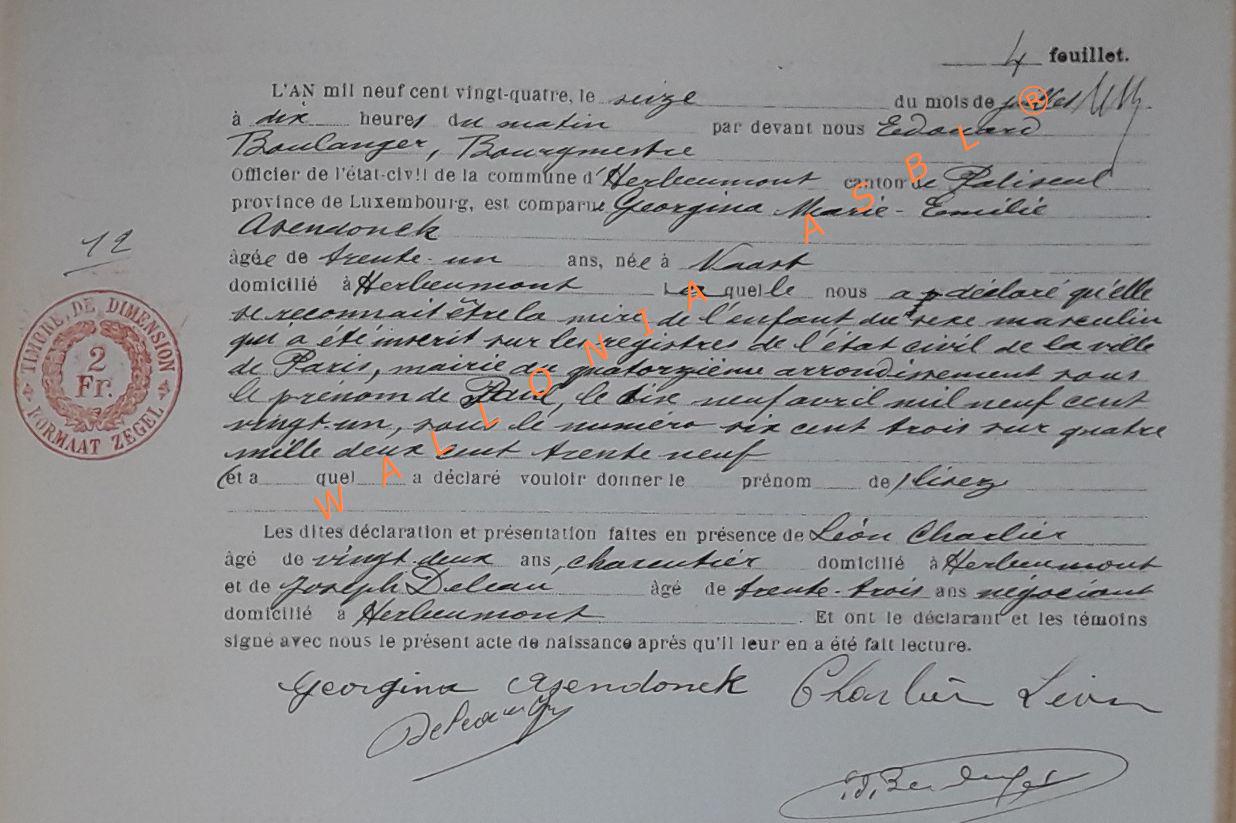 4 feuillet.
L'AN mil neuf cent vingt-quatre, le seize du mois de juillet
à dix heures du matin par devant nous Edouard
Boulanger, Bourgmestre
Officier de l'état-civil de la commune d'Herbeumont canton de Paliseul
province de Luxembourg, est comparue Georgina Marie-Emilie
Asendonck
12
âgée de trente-un ans, née à Vaast
domicilié à Herbeumont Laquelle nous a déclaré qu'elle
se reconnait être la mère de l'enfant du sexe masculin
qui a été inscrit sur les registres de l'état civil de la ville
de Paris, mairie du quatorzième arrondissement sous
le prénom de Paul, le dix neuf avril mil neuf cent
vingt un, sous le numéro six cent trois sur quatre
mille deux cent trente neuf
(et a quel a déclaré vouloir donner le prénom de
Les dites déclaration et présentation faites en présence de Léon Charlier
âgé de vingt-deux ans, charcutier domicilié à Herbeumont
et de Joseph Deleau âgé de trente-trois ans négociant
domicilié à Herbeumont. Et ont le déclarant et les témoins
signé avec nous le présent acte de naissance après qu'il leur en a été fait lecture.
Georgina Asendonck Charlier Léon
TIMBRE DE DIMENSION
2
Fr.
FORMAAT ZEGEL
WALLONIA ASBL ®